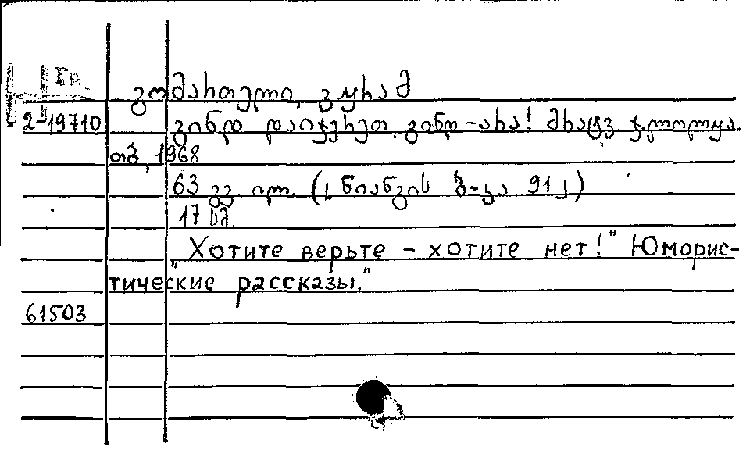 გომართელი, გურამ
2-19710
გინდ დაიჯერეთ, გინდ-არა! მხატვ.
თბ, 1968
63 გვ. ილ. (ნიანგის ბ-კა 91)
17 სმ.
"Хотите верьте - хотите нет!" Юморис-
тические рассказы."
61503